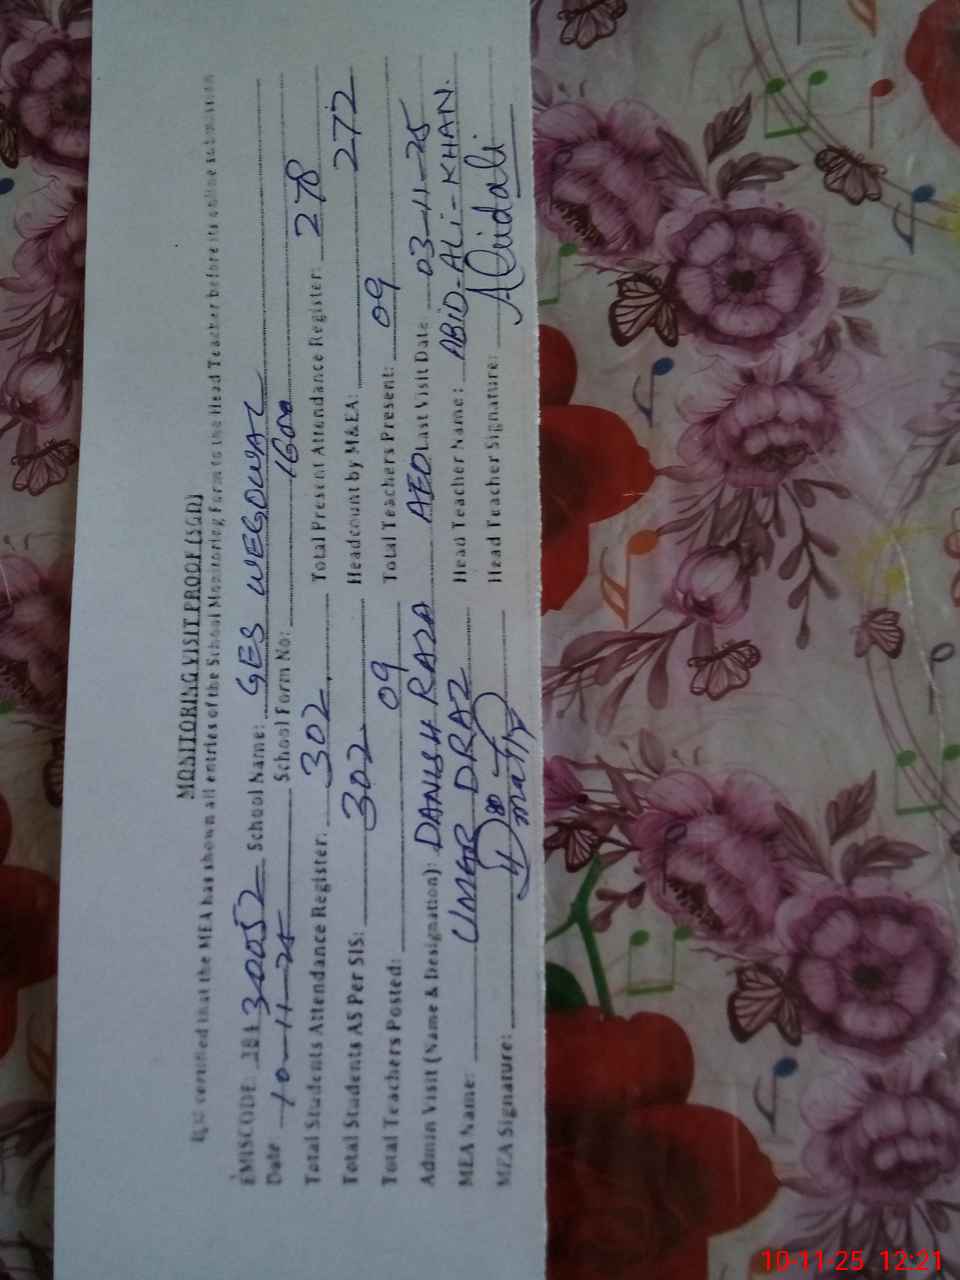 MONITORING VISIT PROOF (SGD)
It is certified that the MEA has shown all entries of the School Monitoring Form to the Head Teacher before its online submission
EMISCODE: 384 30052 School Name: GES WEGOWAL
Date 10-11-25 School Form No: 1600
Total Students Attendance Register: 302 Total Present Attendance Register: 278
Total Students AS Per SIS: 302 Headcount by M&EA: 272
Total Teachers Posted: 09 Total Teachers Present: 09
Admin Visit (Name & Designation): DANISH RAZA AEO Last Visit Date 03-11-25
MEA Name: UMAR DRAZ Head Teacher Name: ABID-ALI-KHAN.
MEA Signature: Head Teacher Signature: Abidali
10-11-25 12:21